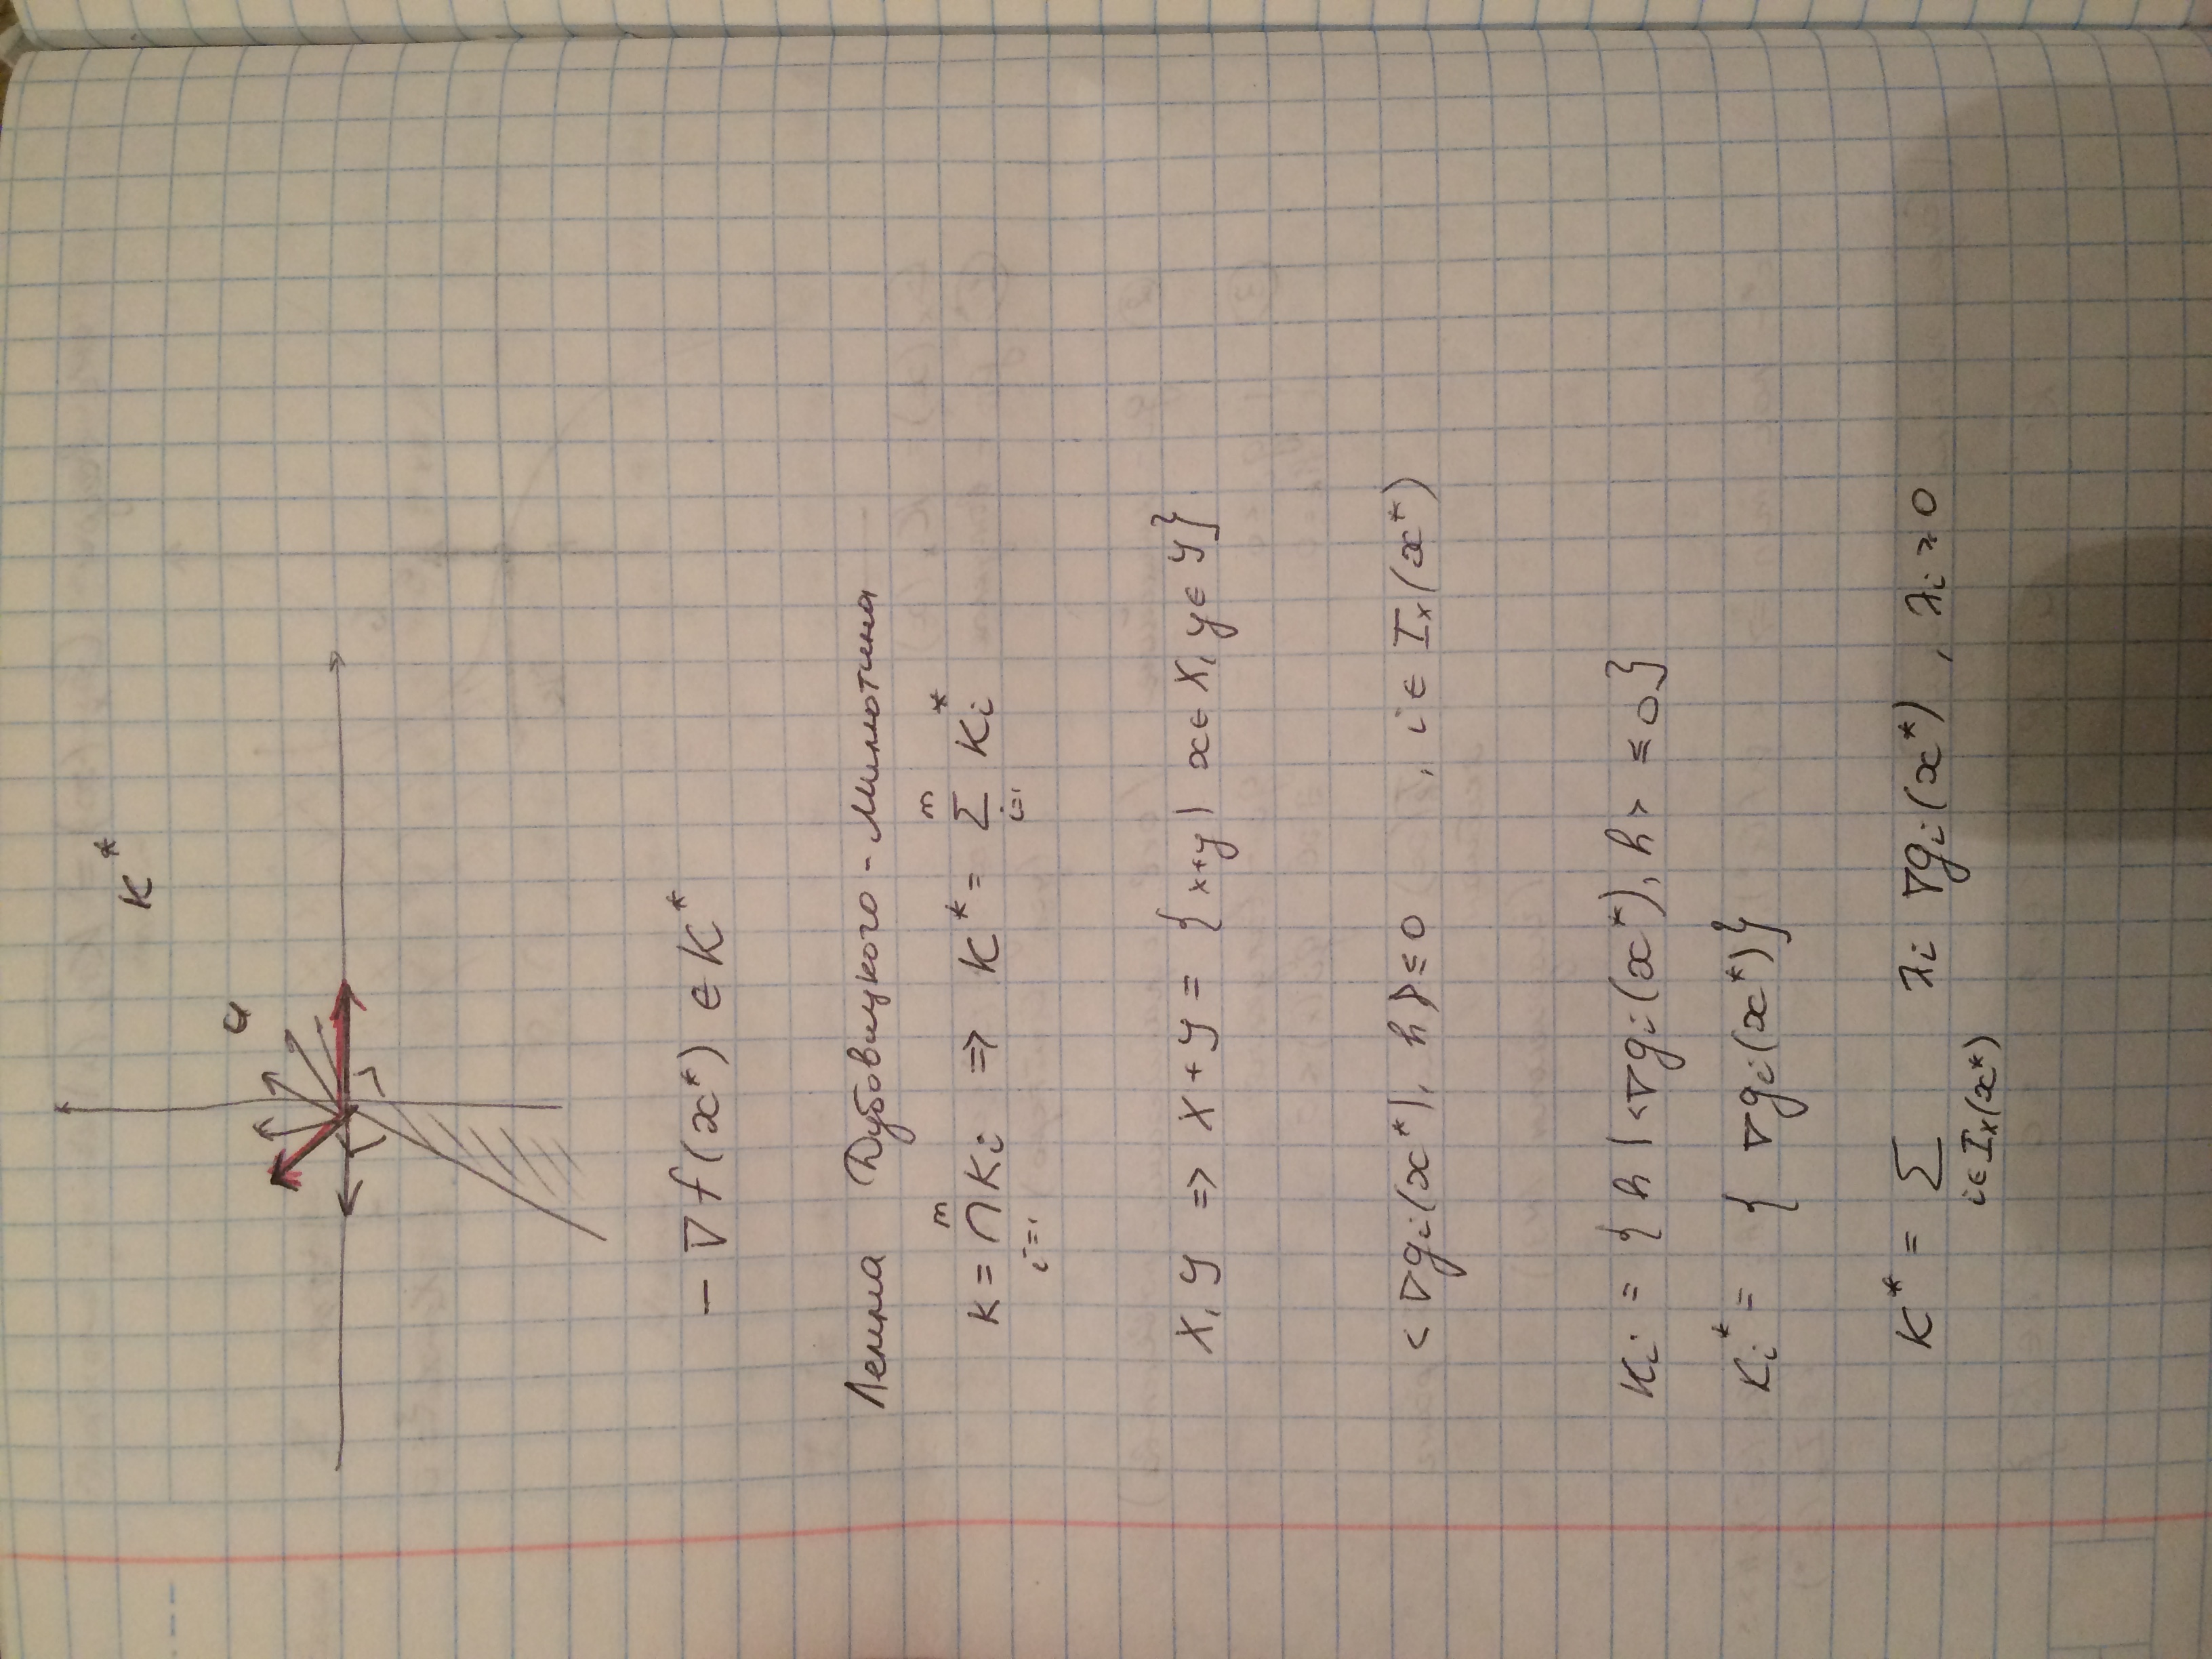 K*
a
- ∇f(x*) ∈ K*
Лемма Дубовицкого - Милютина
K = ⋂_{i=1}^{m} K_i ⇒ K* = ∑_{i=1}^{m} K_i*
X, Y ⇒ X + Y = { x+y | x ∈ X, y ∈ Y }
< ∇g_i(x*), h > ≤ 0 , i ∈ I_x(x*)
K_i = { h | <∇g_i(x*), h> ≤ 0 }
K_i* = { ∇g_i(x*) }
K* = ∑_{i ∈ I_x(x*)} λ_i ∇g_i(x*) , λ_i ≥ 0